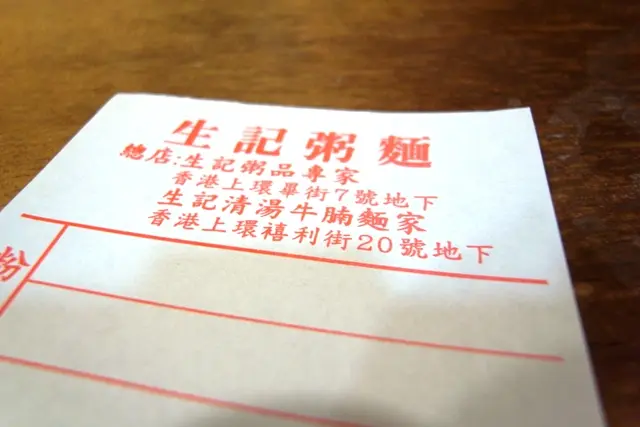 生記粥麵
總店:生記粥品專家
香港上環畢街7號地下
生記清湯牛腩麵家
香港上環禧利街20號地下
份